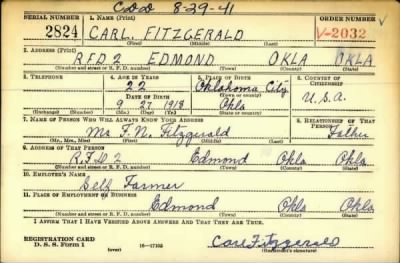 CDD 8-29-41
SERIAL NUMBER 1. NAME (Print) ORDER NUMBER
2824 CARL. FITZGERALD V-2032
(First) (Middle) (Last)
2. ADDRESS (Print)
R.F.D 2 EDMOND OKLA OKLA
(Number and street or R. F. D. number) (Town) (County) (State)
3. TELEPHONE 4. AGE IN YEARS 5. PLACE OF BIRTH 6. COUNTRY OF CITIZENSHIP
22 Oklahoma City
DATE OF BIRTH (Town or county)
9 27 1918 Okla U.S.A.
(Exchange) (Number) (Mo.) (Day) (Yr.) (State or country)
7. NAME OF PERSON WHO WILL ALWAYS KNOW YOUR ADDRESS 8. RELATIONSHIP OF THAT PERSON
Mr F. N. Fitzgerald Father
(Mr., Mrs., Miss) (First) (Middle) (Last)
9. ADDRESS OF THAT PERSON
R.F.D 2 Edmond Okla Okla
(Number and street or R. F. D. number) (Town) (County) (State)
10. EMPLOYER'S NAME
Self Farmer
11. PLACE OF EMPLOYMENT OR BUSINESS
Edmond Okla Okla
(Number and street or R. F. D. number) (Town) (County) (State)
I AFFIRM THAT I HAVE VERIFIED ABOVE ANSWERS AND THAT THEY ARE TRUE.
REGISTRATION CARD
D. S. S. Form 1 16-17105 Carl Fitzgerald
(over) (Registrant's signature)